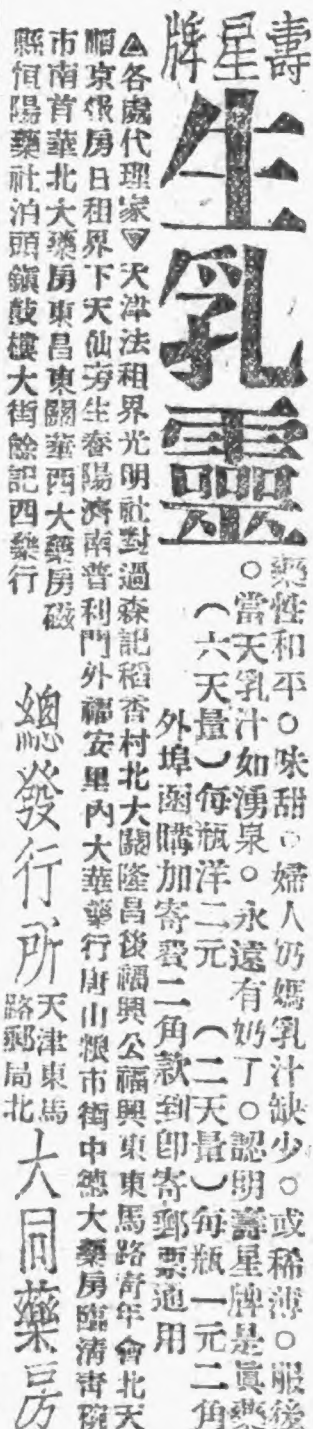 壽星牌
生乳靈
藥性和平。味甜。婦人奶媽乳汁缺少。或稀薄。服後
。當天乳汁如湧泉。永遠有奶了。認明壽星牌是眞藥
(六天量)每瓶洋二元 (二天量)每瓶一元二角
外埠函購加寄費二角款到卽寄郵票通用
▲各處代理家▼天津法租界光明社對過森記稻香村北大關隆昌後福興公福興東東馬路靑年會北天
順京貨房日租界下天仙旁生春陽濟南普利門外福安里內大華藥行唐山粮市街中德大藥房臨淸靑碗
市南首華北大藥房東昌東關華西大藥房磁
縣恒陽藥社泊頭鎭鼓樓大街餘記西藥行
總發行所
天津東馬
路郵局北
大同藥房